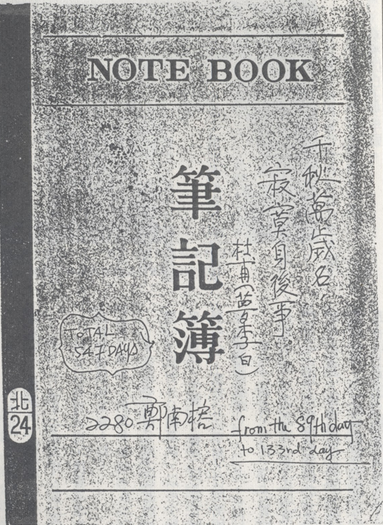 NOTE BOOK
千秋萬歲名，
寂寞身後事。
杜甫(夢李白)
筆記簿
TOTAL
DAYS
北
24
2280 鄭南榕
from the 89th day
to 133rd day